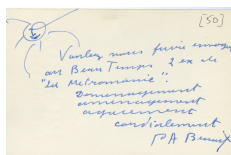 [50]
Voulez nous faire envoyer
au Beau Temps 2 ex de
"La Métromanie".
Demenagement
amenagement
agacement
cordialement